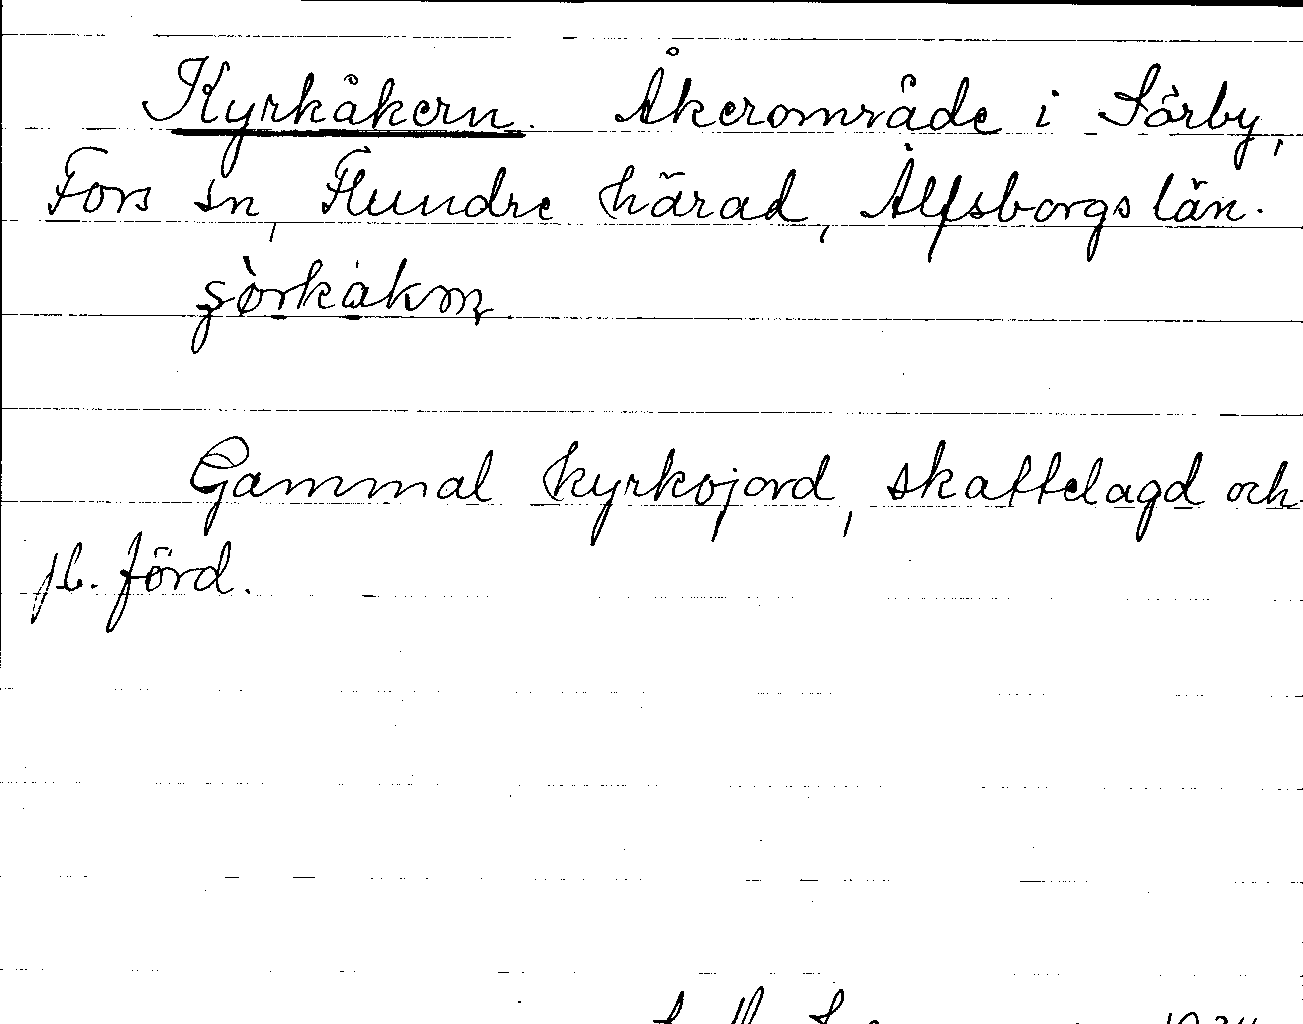 Kyrkåkern. Åkerområde i Sörby,
Fors sn, Flundre härad, Älfsborgs län.
Gammal kyrkojord, skattelagd och
jb. förd.